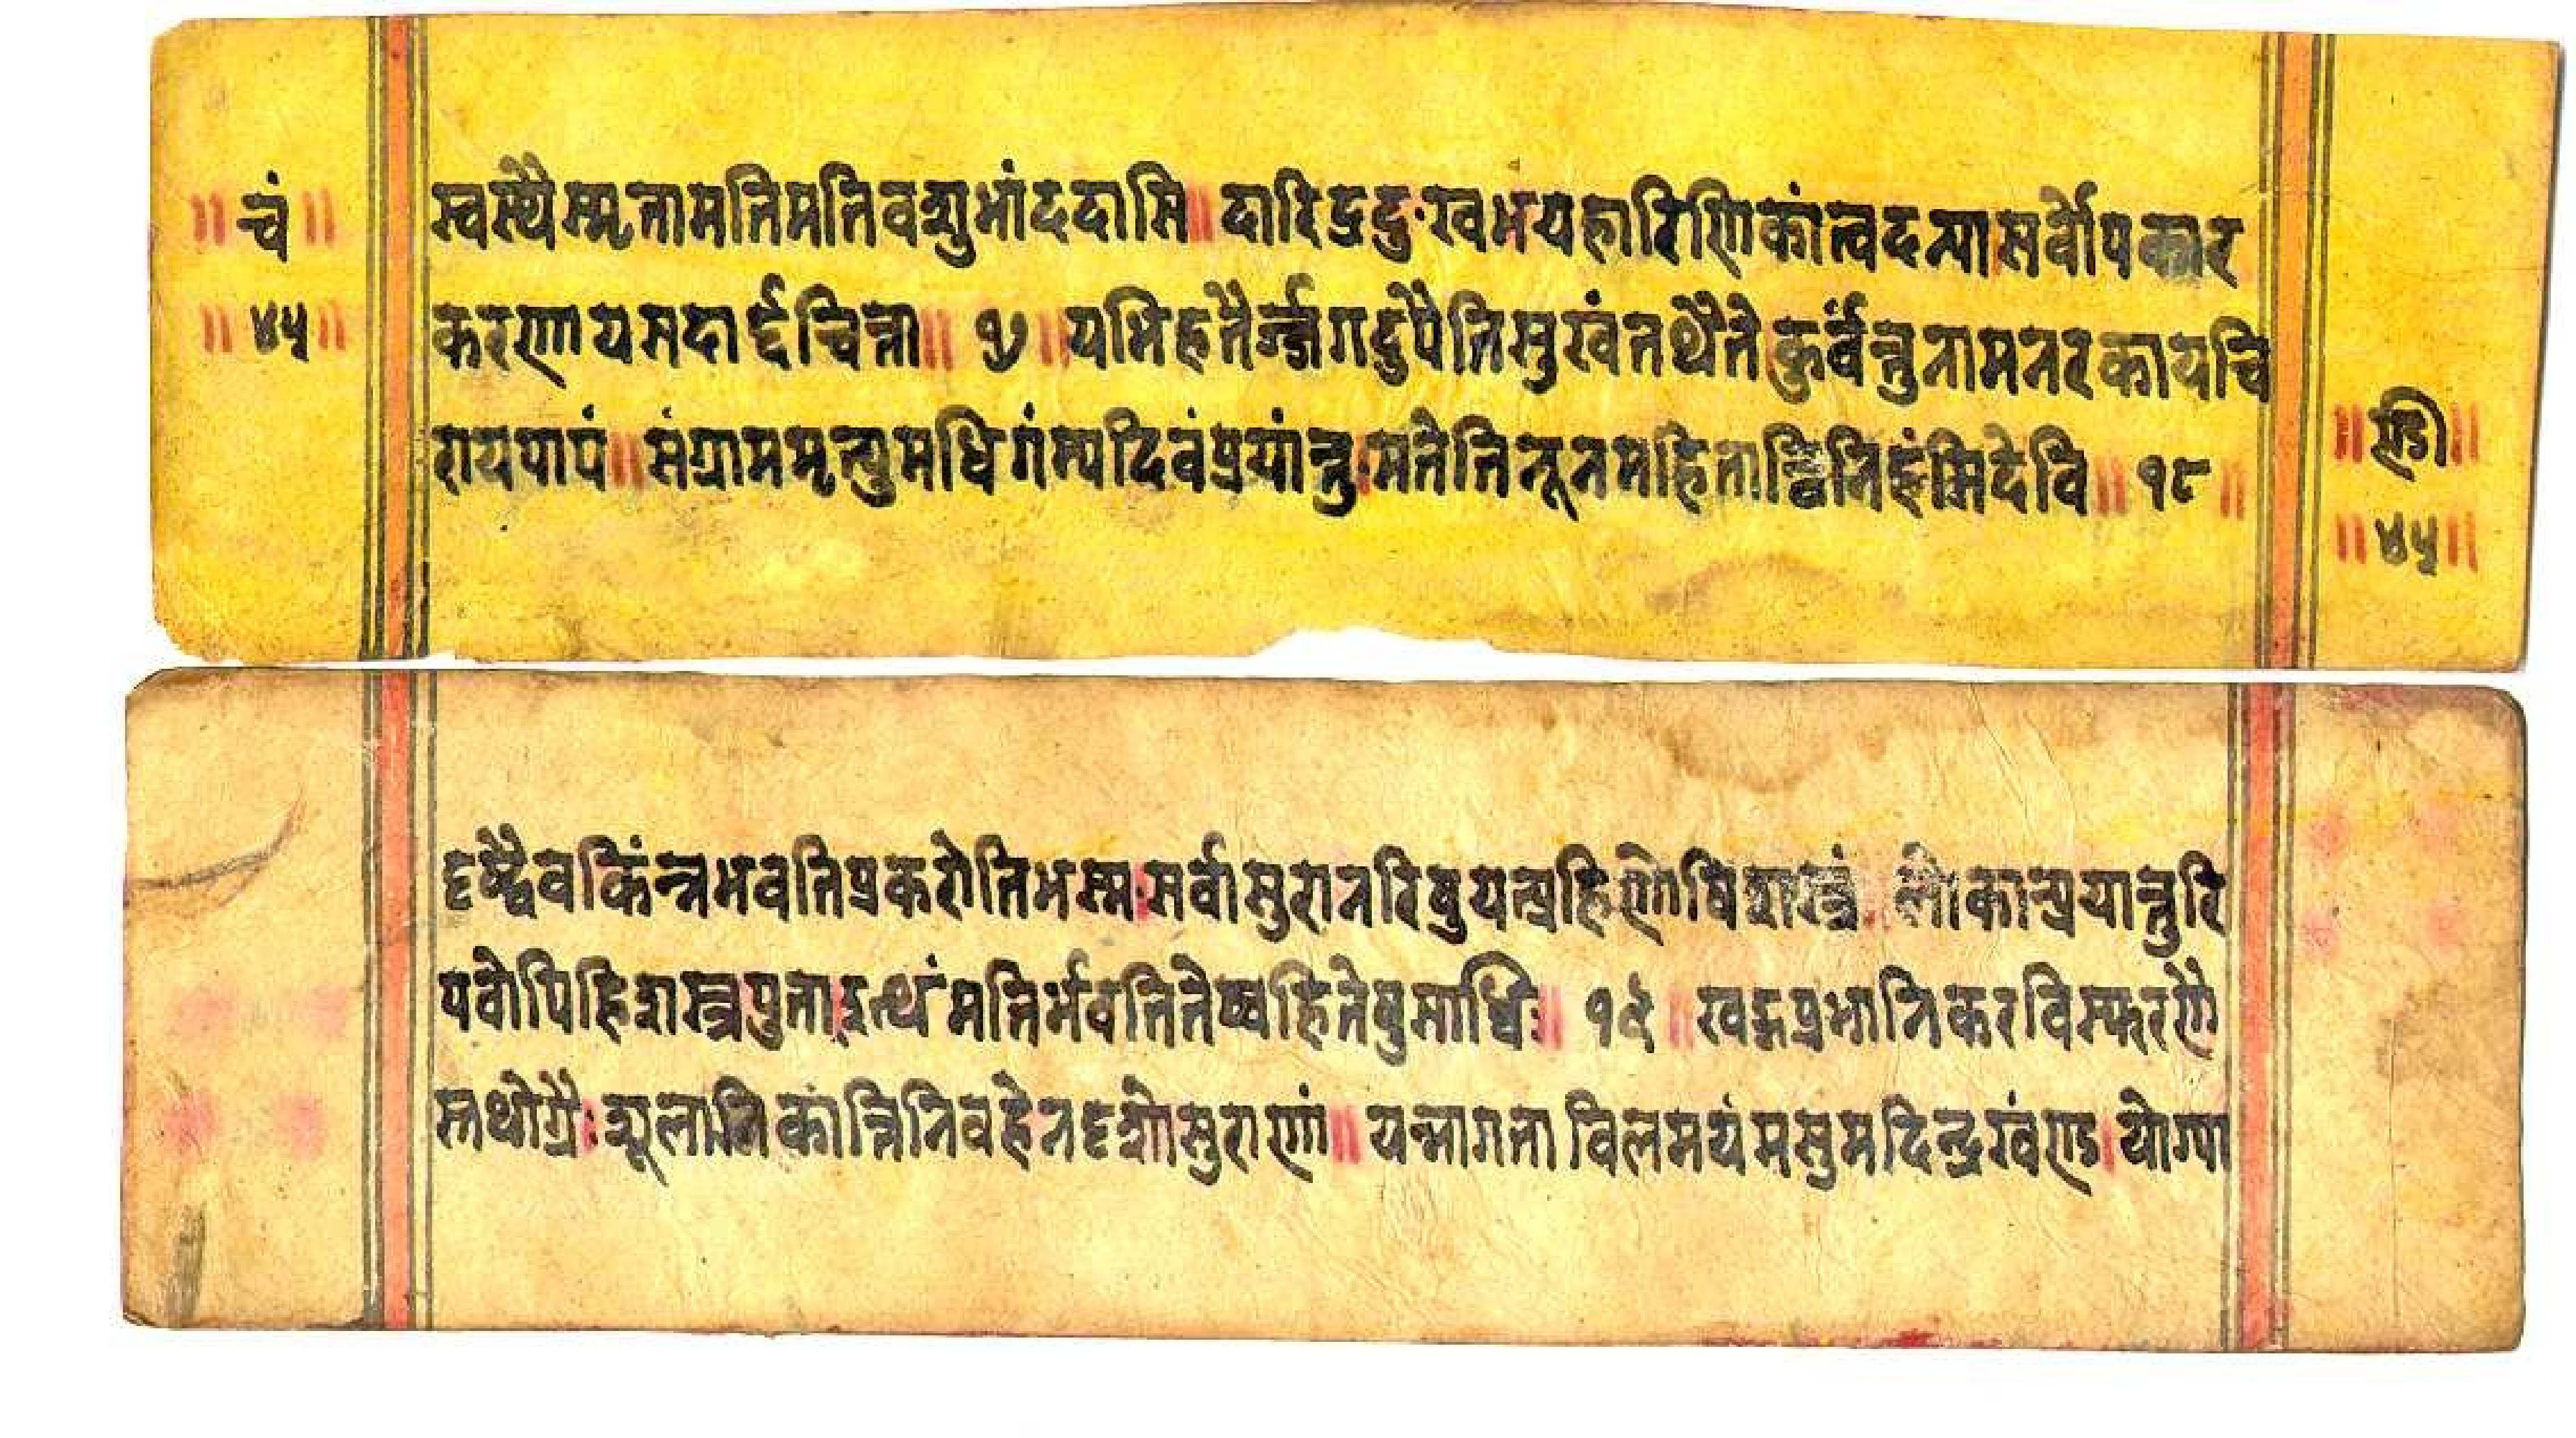 ॥ चं ॥
॥ ४५ ॥
स्वस्थै स्मृतामतिमतिवशुभांददासि ॥ दारिद्रदुःखभयहारिणिकांत्वदन्या सर्वोपकार
करणायसदार्द्रचित्ता ॥ १७ ॥ यभिहतैर्ज्जगदुपैतिसुखंतथैतेकुर्वन्तुनामनरकायचि
रायपापं ॥ संग्राममृत्युमधिगंम्यदिवंप्रयांन्तु मतेतिनूनमहितान्विनिहंसिदेवि ॥ १८ ॥
॥ ण्डी ॥
॥ ४५ ॥
दृष्ट्वैवकिंन्नभवतिप्रकरोतिभस्मःसर्वासुरानरिषुयत्प्रहिणोषिशस्त्रं लोकान्प्रयान्तुरि
पवोपिहिशस्त्रपुता इत्थंमतिर्भवतितेष्वहितेषुसाध्विः ॥ १९ ॥ खड्गप्रभानिकरविस्फरणै
स्तथोग्रैः शूलानिकांन्तिनिवहेनदृशोसुराणां ॥ यन्नागताविलमयंमसुमदिन्द्रखंण्ड योग्या